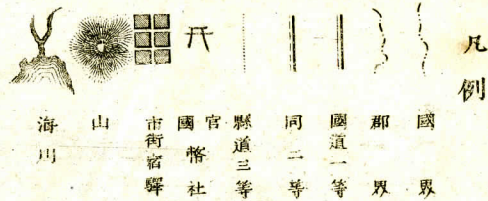 凡例
國界
郡界
國道一等
同二等
縣道三等
官國幣社
市街宿驛
山
海川